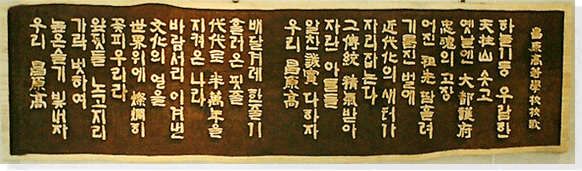 昌原高等學校校歌
하늘기둥 우람한
天柱山 솟고
옛날엔 大都護府
忠魂의 고장
어진 祖光 받들려
기름진 벌에
近代化의 새터가
자리잡는다
그 傳統 精氣받아
자란 이들
알찬 誠實 다하자
우리 昌原高
배달겨레 한 줄기
흘러온 핏줄
代代로 半萬年을
지켜온 나라
바람서리 이겨낸
文化의 얼을
世界위에 燦爛히
꽃피우리라
왔핏들 노고지리
가락 벗하여
높은 슬기 빛내자
우리 昌原高